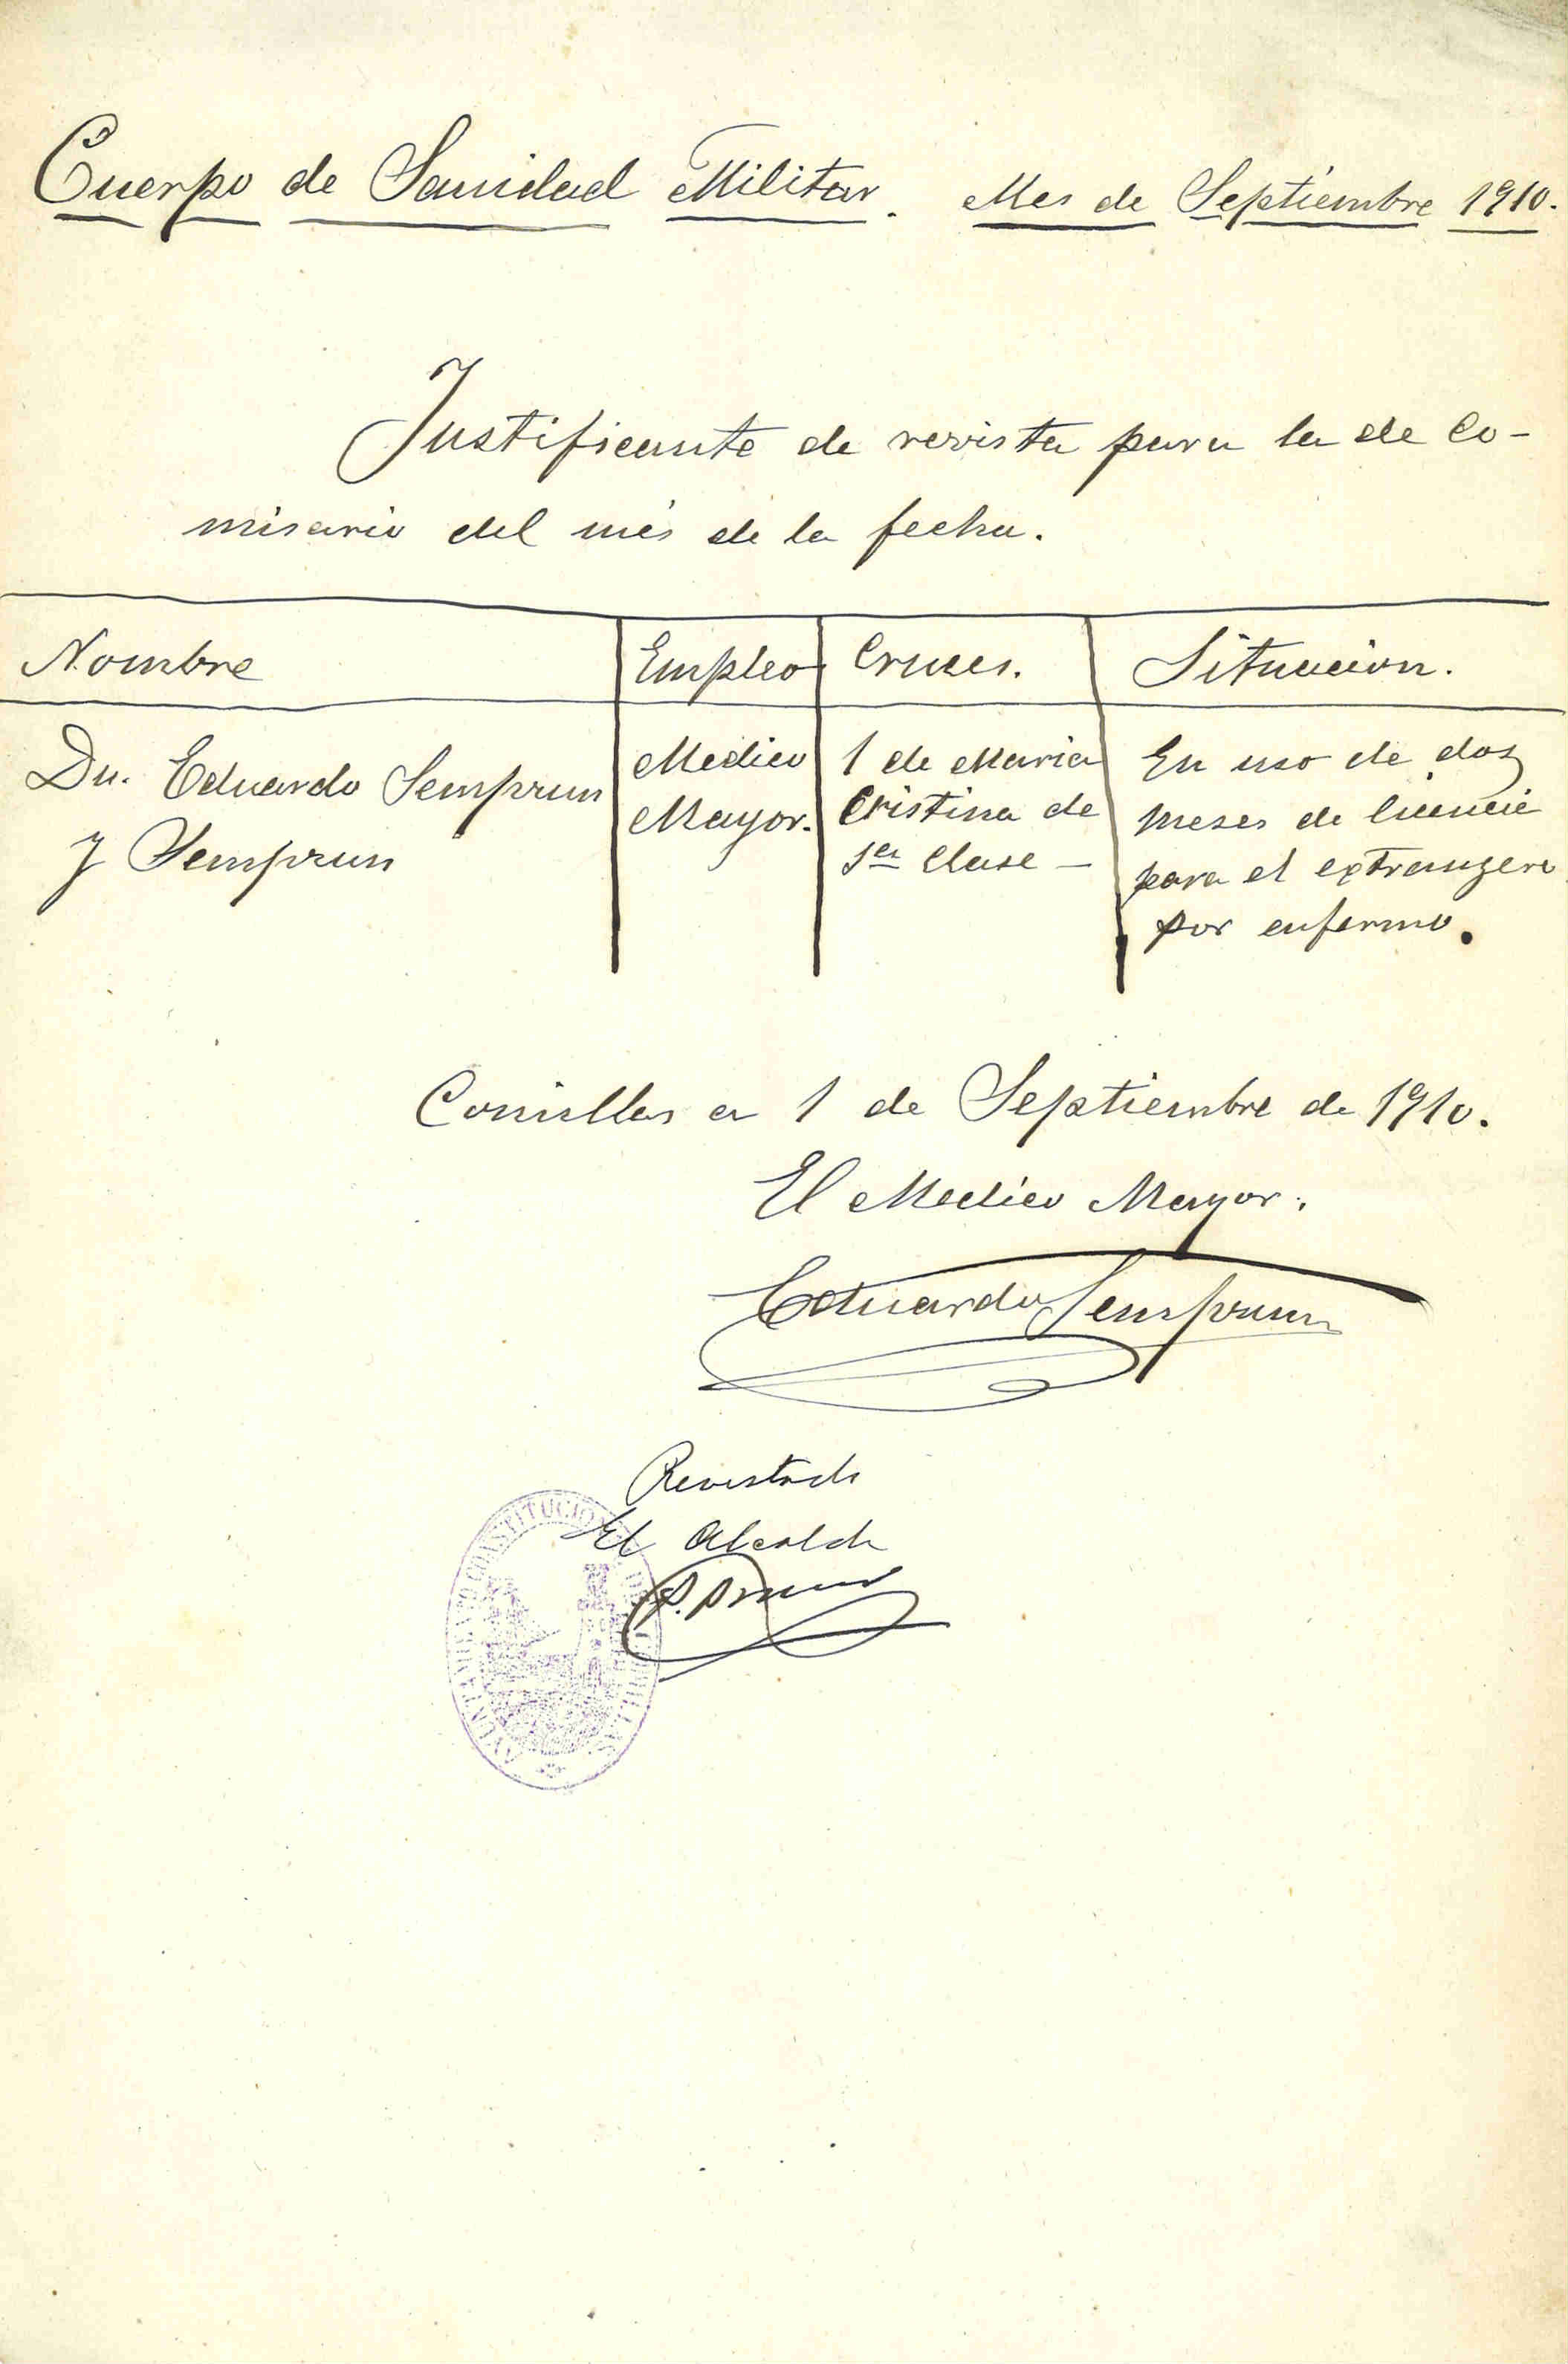 Cuerpo de Sanidad Militar. Mes de Septiembre 1910.
Justificante de revista para la de Co-
misario del més de la fecha.
Nombre Empleo Cruces. Situacion.
Dn. Eduardo Semprun
y Semprun
Medico
Mayor.
1 de Maria
Cristina de
1ª Clase —
En uso de dos
meses de licencia
para el extrangero
por enfermo.
Comillas a 1 de Septiembre de 1910.
El Medico Mayor.
Eduardo Semprun
Revistado
El Alcalde
AYUNTAMIENTO CONSTITUCIONAL DE COMILLAS